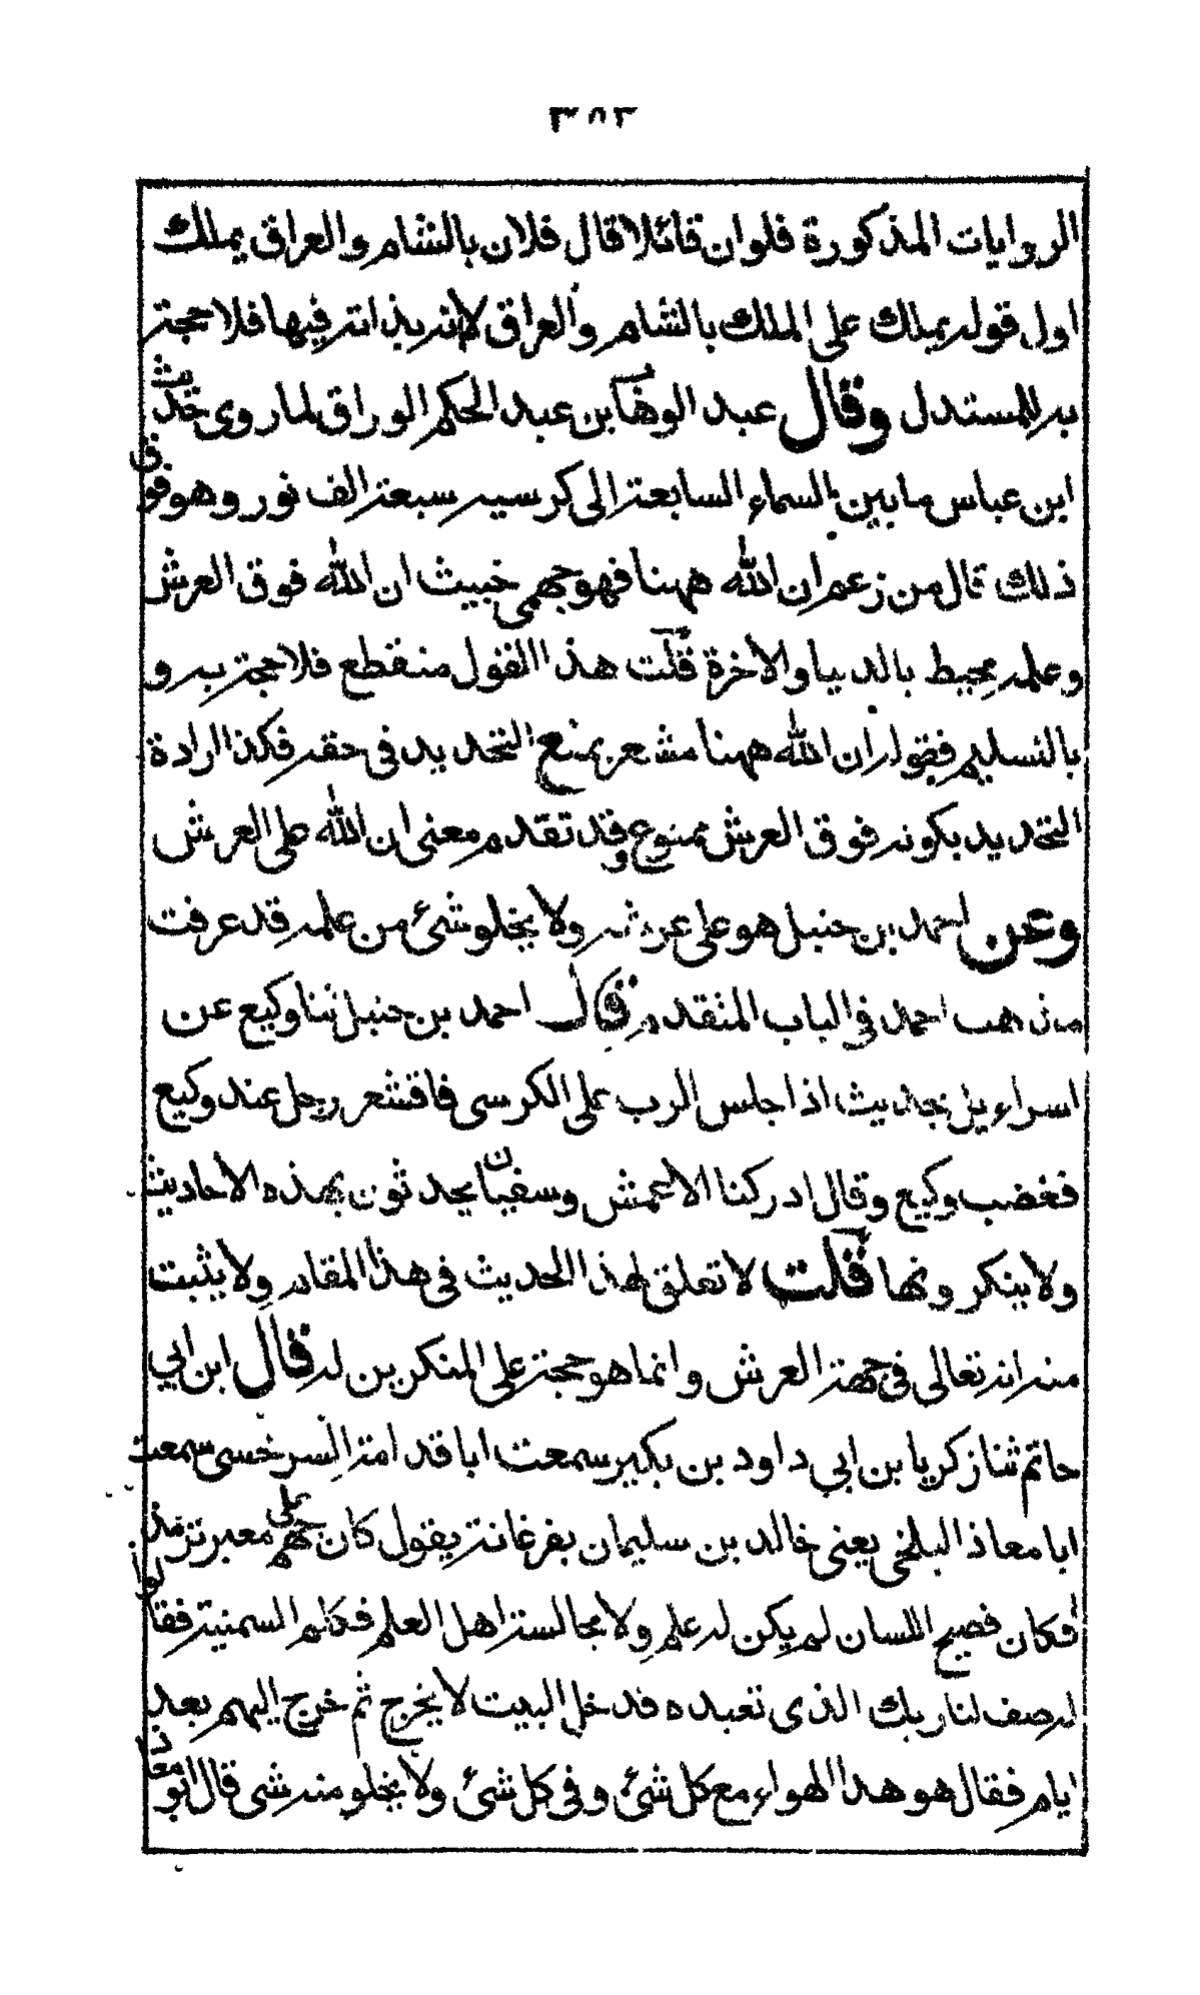 الروايات المذكورة فلوان قائلا قال فلان بالشام والعراق يملك
اول قوله يملك على الملك بالشام والعراق لا انه بذاته فيها فلا حجة
به للمستدل وقال عبد الوهاب بن عبد الحكم الوراق لما روى حديث
ابن عباس ما بين السماء السابعة الى كرسيه سبعة الف نور وهو فوق
ذلك قال من زعم ان الله ههنا فهو جهمى خبيث ان الله فوق العرش
وعلمه محيط بالدنيا والاخرة قلت هذا القول منقطع فلا حجة به و
بالتسليم فقوله ان الله ههنا مشعر بمنع التحديد فى حقه فكذا ارادة
التحديد بكونه فوق العرش ممنوع وقد تقدم معنى ان الله على العرش
وعن احمد بن حنبل هو على عرشه ولا يخلو شئ من علمه قد عرفت
مذهب احمد فى الباب المتقدم قال احمد بن حنبل ثنا وكيع عن
اسراءيل بحديث اذا جلس الرب على الكرسى فاقشعر رجل عند وكيع
فغضب وكيع وقال ادركنا الاعمش وسفيان يحدثون بهذه الاحاديث
ولا ينكرونها قلت لا تعلق لهذا الحديث فى هذا المقام ولا يثبت
منه انه تعالى فى جهة العرش وانما هو حجة على المنكرين له قال ابن ابي
حاتم ثنا زكريا بن ابي داود بن بكير سمعت ابا قدامة السرخسى سمعت
ابا معاذ البلخى يعنى خالد بن سليمان بفرغانة يقول كان جهم على معبر ترمذ
فكان فصيح اللسان لم يكن له علم ولا مجالسة اهل العلم فكلم السمنية فقالوا
له صف لنا ربك الذى تعبده فدخل البيت لا يخرج ثم خرج اليهم بعد
ايام فقال هو هذا الهواء مع كل شئ وفى كل شئ ولا يخلو منه شى قال ابو معاذ